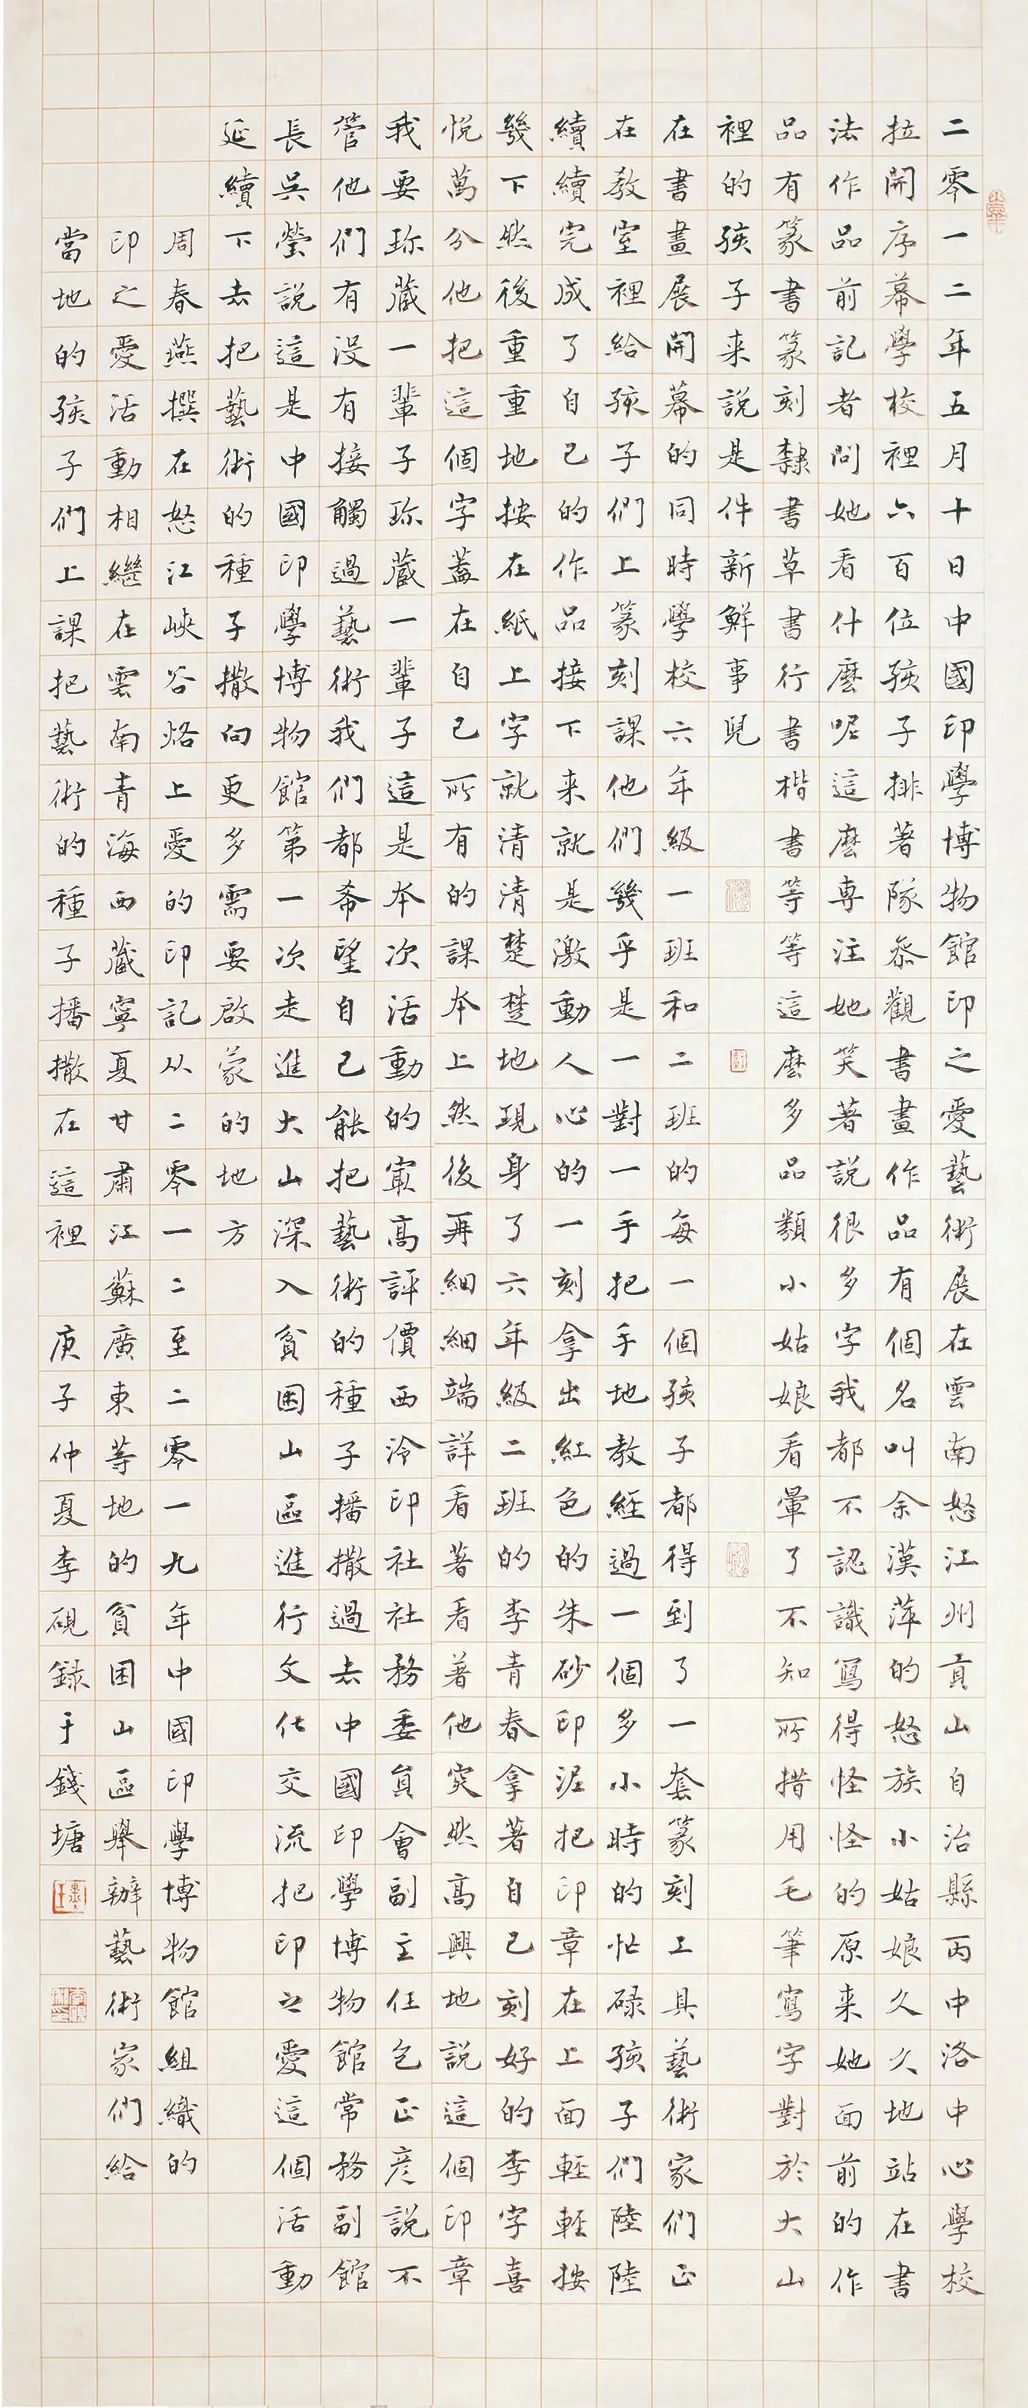 二零一二年五月十日中國印學博物館印之愛藝術展在雲南怒江州貢山自治縣丙中洛中心學校
拉開序幕學校裡六百位孩子排著隊叅觀書畫作品有個名叫余漢萍的怒族小姑娘久久地站在書
法作品前記者問她看什麼呢這麼專注她笑著說很多字我都不認識寫得怪怪的原来她面前的作
品有篆書篆刻隸書草書行書楷書等等這麼多品類小姑娘看暈了不知所措用毛筆寫字對於大山
裡的孩子来說是件新鮮事兒
在書畫展開幕的同時學校六年級一班和二班的每一個孩子都得到了一套篆刻工具藝術家們正
在教室裡給孩子們上篆刻課他們幾乎是一對一手把手地教經過一個多小時的忙碌孩子們陸陸
續續完成了自己的作品接下来就是激動人心的一刻拿出紅色的朱砂印泥把印章在上面輕輕按
幾下然後重重地按在紙上字就清清楚楚地現身了六年級二班的李青春拿著自己刻好的李字喜
悅萬分他把這個字蓋在自己所有的課本上然後再細細端詳看著看著他突然高興地說這個印章
我要珍藏一輩子珍藏一輩子這是本次活動的寂高評價西泠印社社務委員會副主任包正彦說不
管他們有没有接觸過藝術我們都希望自己能把藝術的種子播撒過去中國印學博物館常務副館
長吳瑩說這是中國印學博物館第一次走進大山深入貧困山區進行文化交流把印之愛這個活動
延續下去把藝術的種子撒向更多需要啟蒙的地方
周春燕撰在怒江峽谷烙上愛的印記从二零一二至二零一九年中國印學博物館組織的
印之愛活動相繼在雲南青海西藏寧夏甘肅江蘇廣東等地的貧困山區舉辦藝術家們給
當地的孩子們上課把藝術的種子播撒在這裡庚子仲夏李硯録于錢塘